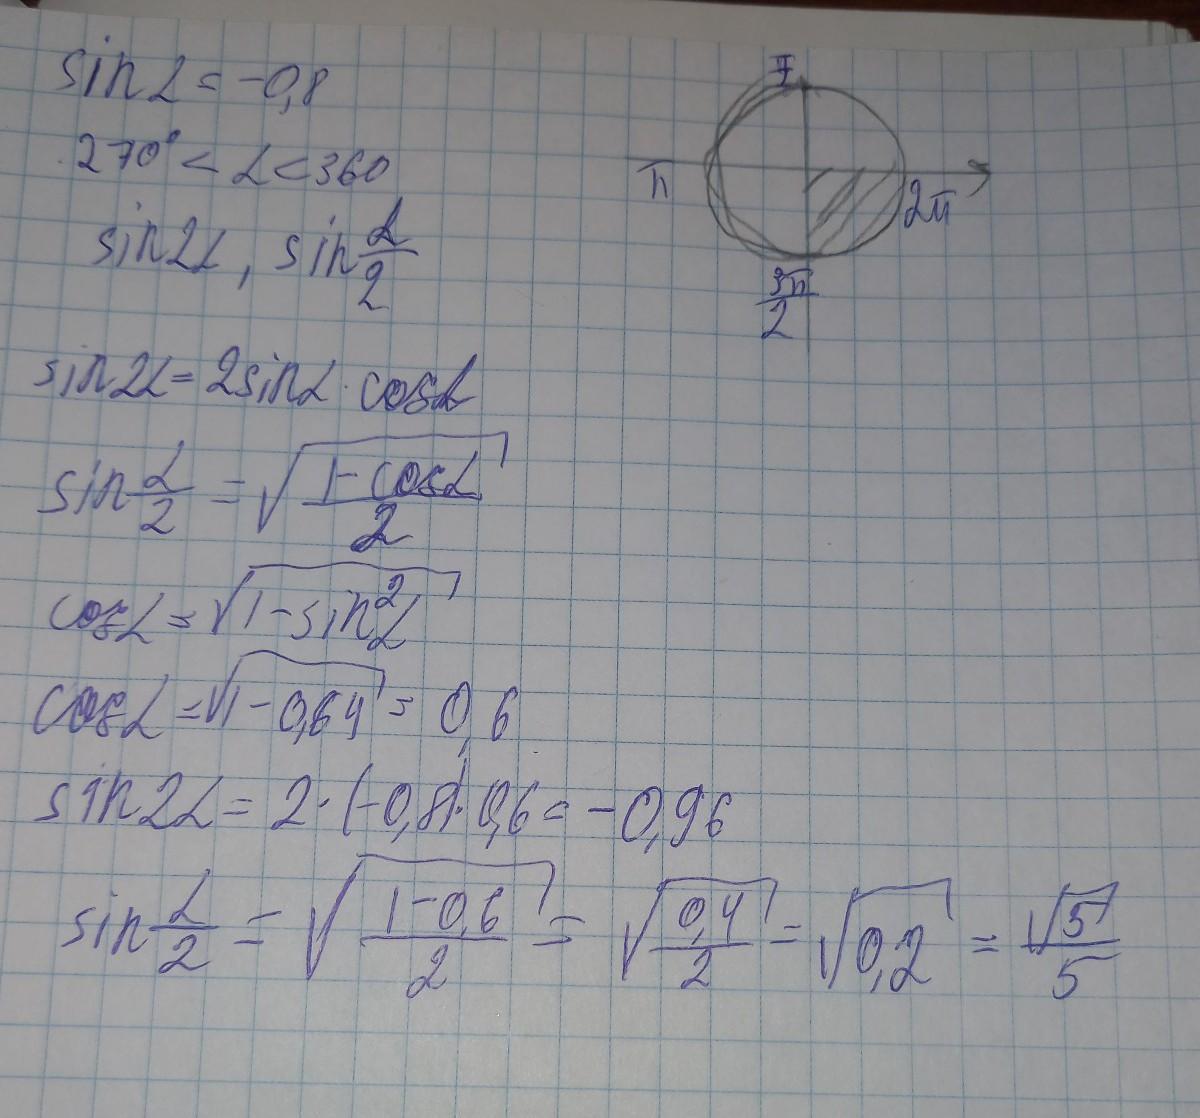 sin α = -0,8
270° < α < 360
sin 2α, sin α/2
sin 2α = 2 sin α · cos α
sin α/2 = √((1 - cos α)/2)
cos α = √(1 - sin² α)
cos α = √(1 - 0,64) = 0,6
sin 2α = 2 · (-0,8) · 0,6 = -0,96
sin α/2 = √((1 - 0,6)/2) = √(0,4/2) = √0,2 = √5/5
π
2π
3π/2